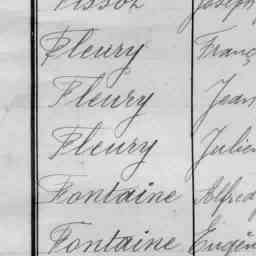 Fleury Franç
Fleury Jean
Fleury Julien
Fontaine Alfred
Fontaine Eugèn